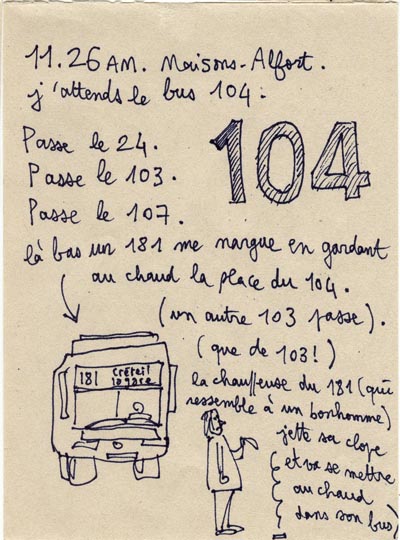 11.26 AM. Maisons-Alfort.
j'attends le bus 104.
104
Passe le 24.
Passe le 103.
Passe le 107.
là bas un 181 me nargue en gardant
au chaud la place du 104.
(un autre 103 passe).
(que de 103!)
la chauffeuse du 181 (qui
ressemble à un bonhomme)
jette sa clope
et va se mettre
au chaud
dans son bus)
181
Créteil
la gare